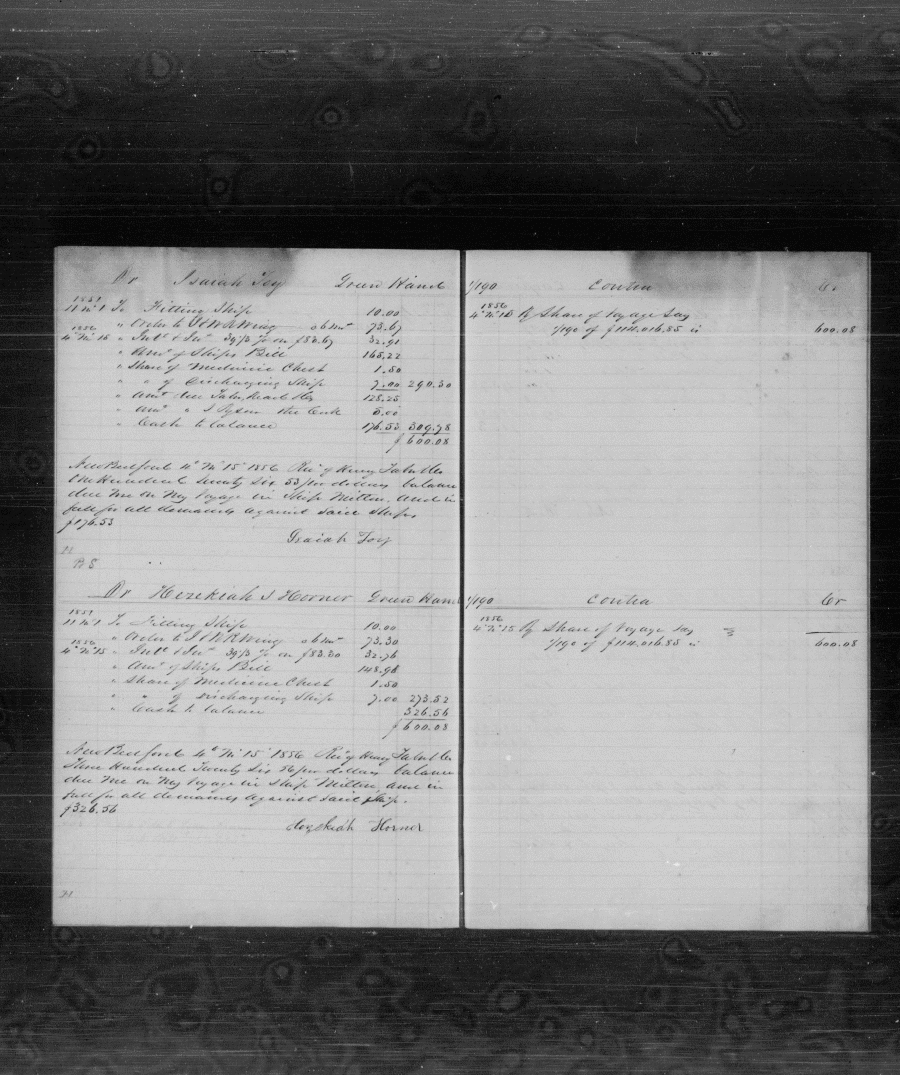 Dr Isaiah Foy Green Hand 1/190 Contra Cr
1851
11 Mo 1 To Fitting Ship 10.00
" Order to J & W R Wing 6 mo 73.67
1856
4 Mo 15 " Int & Ins 39/3 % on $83.67 32.91
" Amt of Ships Bill 165.22
" Share of Medicine Chest 1.50
" " of Discharging Ship 7.00 290.30
" Amt due Taber, Read & Co 128.25
" Amt " the Cook 5.00
" Cash to balance 176.53 309.78
$ 600.08
1856
4 Mo 15 By Share of Voyage Say
1/190 of $114.016.85 is 600.08
New Bedford 4th Mo 15 1856 Recd of Henry Taber & Co
One Hundred Seventy Six 53/100 dollars balance
due me on my Voyage in Ship Milton, and in
full for all demands against said Ship
$176.53
Isaiah Foy
Dr Hezekiah J Horner Green Hand 1/190 Contra Cr
1851
11 Mo 1 To Fitting Ship 10.00
" Order to J & W R Wing 6 mo 73.30
1856
4 Mo 15 " Int & Ins 39/3 % on $83.30 32.76
" Amt of Ships Bill 148.96
" Share of Medicine Chest 1.50
" " of Discharging Ship 7.00 273.52
" Cash to balance 326.56
$ 600.08
1856
4 Mo 15 By Share of Voyage Say
1/190 of $114.016.85 is 600.08
New Bedford 4th Mo 15 1856 Recd of Henry Taber & Co
Three Hundred Twenty Six 56/100 dollars balance
due me on my Voyage in Ship Milton, and in
full for all demands against said Ship.
$326.56
Hezekiah Horner